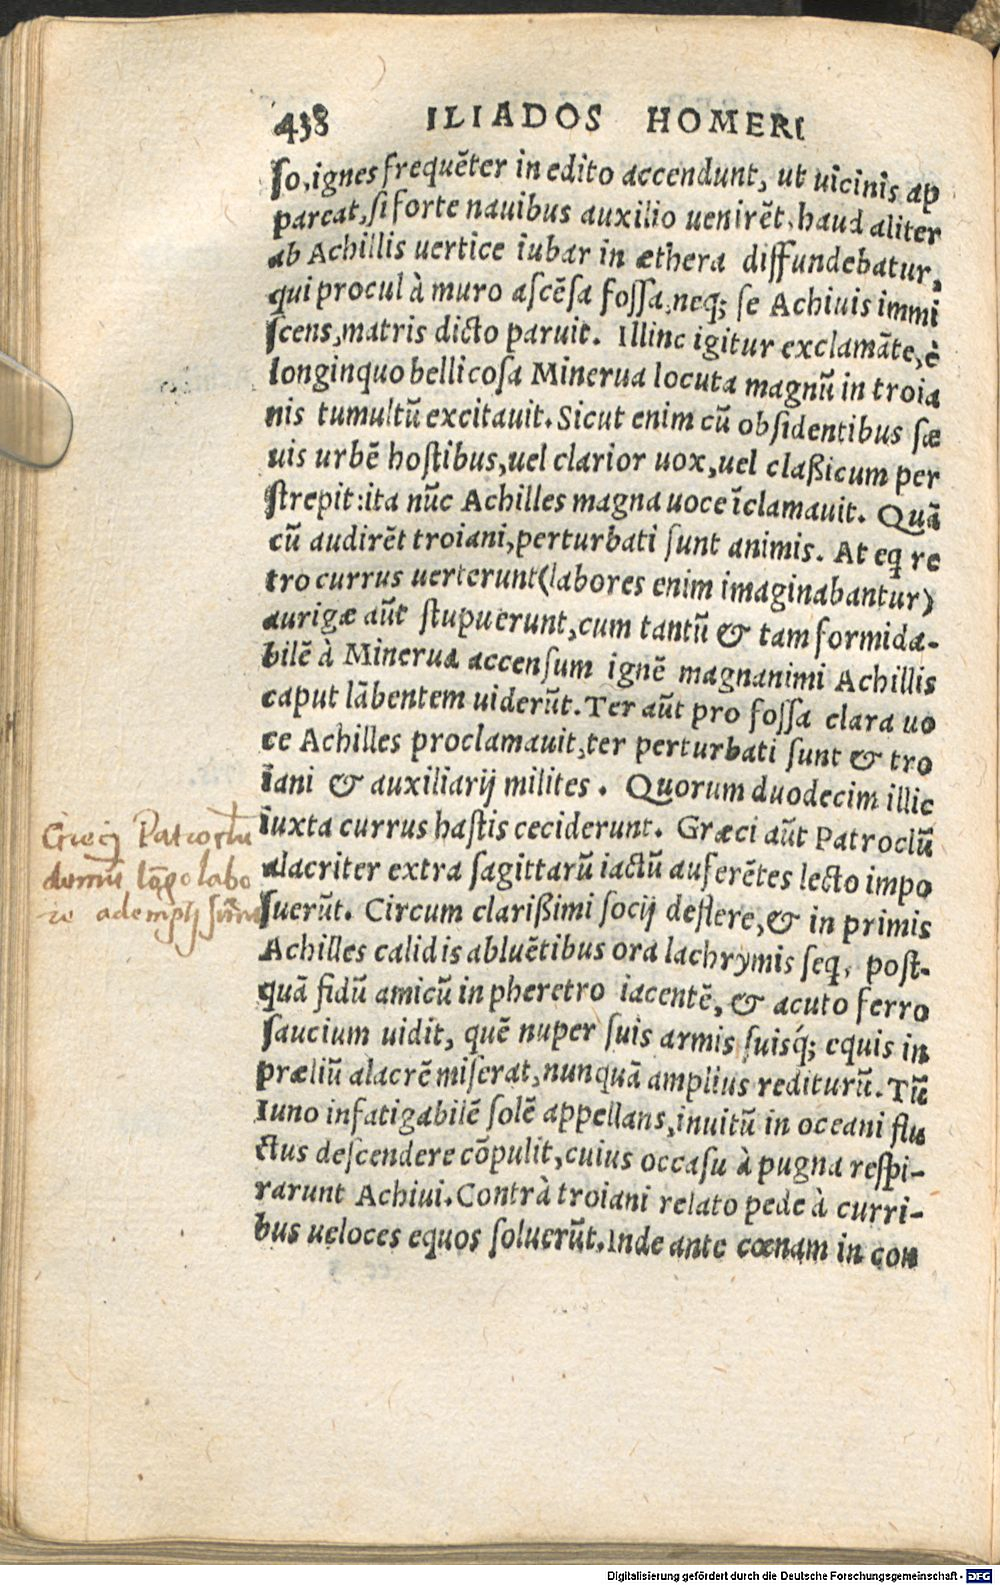 438 ILIADOS HOMERI
ſo, ignes frequẽter in edito accendunt, ut uicinis ap
pareat, ſi forte nauibus auxilio uenirẽt, haud aliter
ab Achillis uertice iubar in æthera diffundebatur,
qui procul à muro aſcẽſa foſſa, neq; ſe Achiuis immi
ſcens, matris dicto paruit. Illinc igitur exclamãte, è
longinquo bellicoſa Minerua locuta magnũ in troia
nis tumultũ excitauit. Sicut enim cũ obſidentibus ſæ
uis urbẽ hoſtibus, uel clarior uox, uel claßicum per
ſtrepit: ita nũc Achilles magna uoce ĩclamauit. Quã
cũ audirẽt troiani, perturbati ſunt animis. At eq re
tro currus uerterunt (labores enim imaginabantur)
aurigæ aũt ſtupuerunt, cum tantũ & tam formida-
bilẽ à Minerua accenſum ignẽ magnanimi Achillis
caput lãbentem uiderũt. Ter aũt pro foſſa clara uo
ce Achilles proclamauit, ter perturbati ſunt & tro
iani & auxiliarij milites. Quorum duodecim illic
iuxta currus haſtis ceciderunt. Græci aũt Patroclũ
alacriter extra ſagittarũ iactũ auferẽtes lecto impo
ſuerũt. Circum clarißimi ſocij deflere, & in primis
Achilles calidis abluẽtibus ora lachrymis ſeq, poſt-
quã fidũ amicũ in pheretro iacentẽ, & acuto ferro
ſaucium uidit, quẽ nuper ſuis armis ſuisq́; equis in
præliũ alacrẽ miſerat, nunquã amplius rediturũ. Tũ
Iuno infatigabilẽ ſolẽ appellans, inuitũ in oceani flu
ctus deſcendere cõpulit, cuius occaſu à pugna reſpi-
rarunt Achiui. Contrà troiani relato pede à curri-
bus ueloces equos ſoluerũt. Inde ante cœnam in con
Patroclũ
labo
re
Digitalisierung gefördert durch die Deutsche Forschungsgemeinschaft - DFG